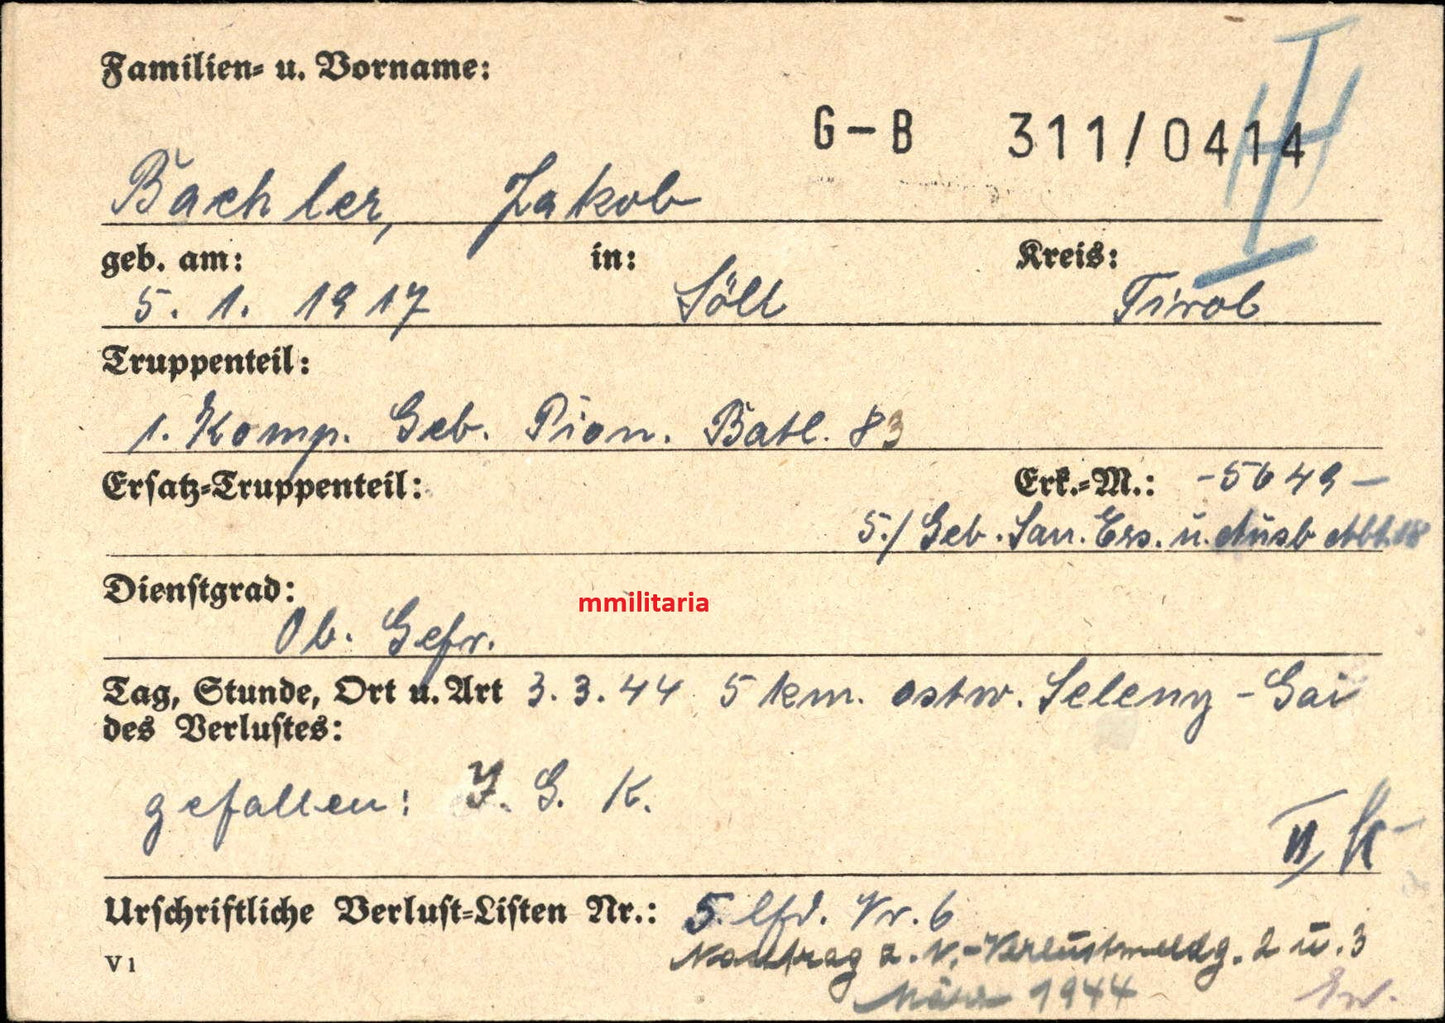 Familien- u. Vorname:
G-B 311/0414
Bachler, Jakob
geb. am: in: Kreis:
5. 1. 1917 Söll Tirol
Truppenteil:
1. Komp. Geb. Pion. Batl. 83
Ersatz-Truppenteil: Erk.-M.: -5649-
5./Geb. San. Ers. u. Ausb Abt. 18
Dienstgrad:
mmilitaria
Ob. Gefr.
Tag, Stunde, Ort u. Art 3. 3. 44 5 km. ostw. Seleny-Gai
des Verlustes:
gefallen: I. G. K.
II
Urschriftliche Verlust-Listen Nr.: 5. lfd. Nr. 6
Nachtrag z. N.-Verlustmeldg. 2 u. 3
V 1
März 1944